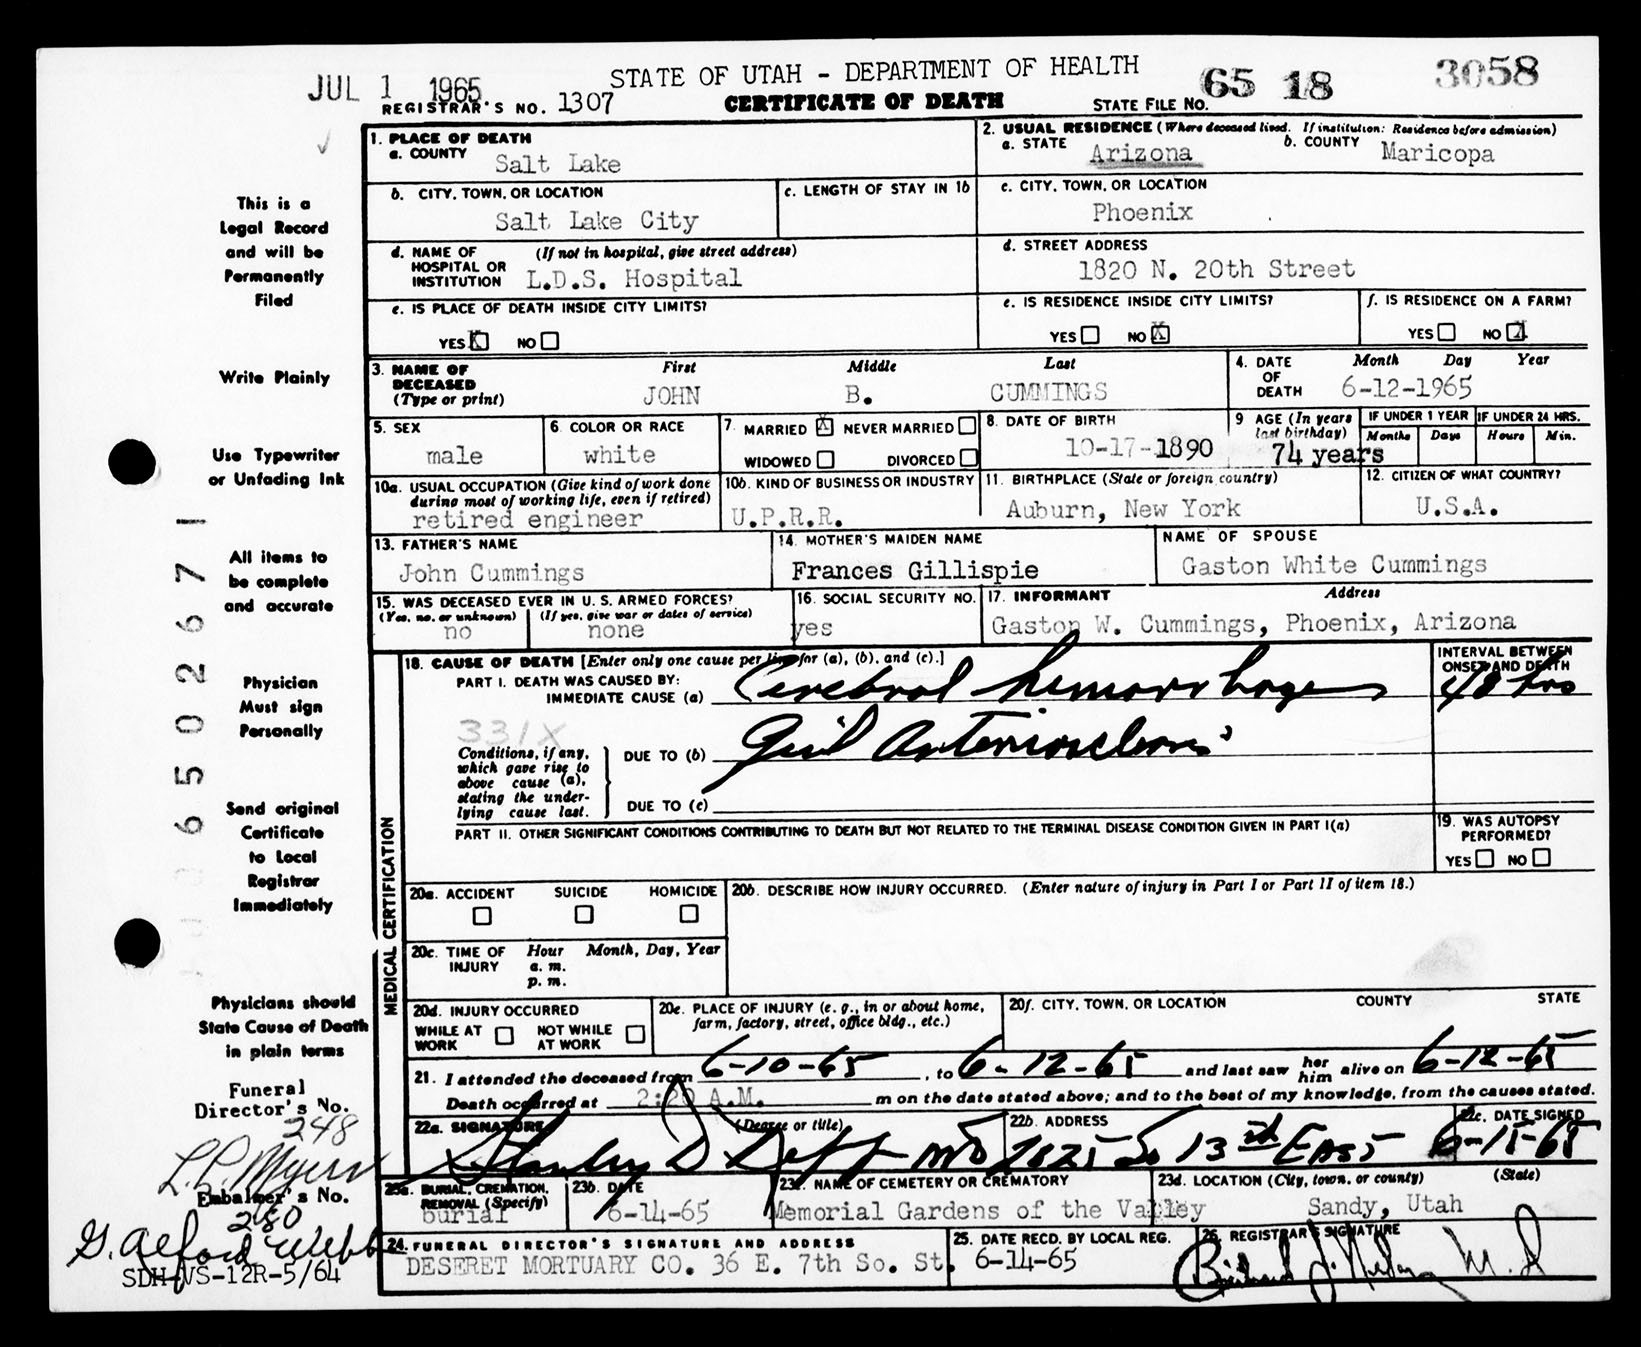 JUL 1 1965
STATE OF UTAH - DEPARTMENT OF HEALTH
65 18 3058
REGISTRAR'S NO. 1307
CERTIFICATE OF DEATH
STATE FILE NO.
This is a
Legal Record
and will be
Permanently
Filed
Write Plainly
Use Typewriter
or Unfading Ink
All items to
be complete
and accurate
Physician
Must sign
Personally
Send original
Certificate
to Local
Registrar
Immediately
Physicians should
State Cause of Death
in plain terms
Funeral
Director's No.
248
L.L. Myers
Embalmer's No.
280
G. Alford Webb
SDH-VS-12R-5/64
650267 1
1. PLACE OF DEATH
a. COUNTY Salt Lake
2. USUAL RESIDENCE (Where deceased lived. If institution: Residence before admission)
a. STATE Arizona b. COUNTY Maricopa
b. CITY, TOWN, OR LOCATION
Salt Lake City
c. LENGTH OF STAY IN 1b
c. CITY, TOWN, OR LOCATION
Phoenix
d. NAME OF HOSPITAL OR INSTITUTION (If not in hospital, give street address)
L.D.S. Hospital
d. STREET ADDRESS
1820 N. 20th Street
e. IS PLACE OF DEATH INSIDE CITY LIMITS?
YES X NO
e. IS RESIDENCE INSIDE CITY LIMITS?
YES NO X
f. IS RESIDENCE ON A FARM?
YES NO X
3. NAME OF DECEASED (Type or print)
First Middle Last
JOHN B. CUMMINGS
4. DATE OF DEATH Month Day Year
6-12-1965
5. SEX
male
6. COLOR OR RACE
white
7. MARRIED X NEVER MARRIED
WIDOWED DIVORCED
8. DATE OF BIRTH
10-17-1890
9 AGE (In years last birthday)
74 years
IF UNDER 1 YEAR IF UNDER 24 HRS.
Months Days Hours Min.
10a. USUAL OCCUPATION (Give kind of work done during most of working life, even if retired)
retired engineer
10b. KIND OF BUSINESS OR INDUSTRY
U.P.R.R.
11. BIRTHPLACE (State or foreign country)
Auburn, New York
12. CITIZEN OF WHAT COUNTRY?
U.S.A.
13. FATHER'S NAME
John Cummings
14. MOTHER'S MAIDEN NAME
Frances Gillispie
NAME OF SPOUSE
Gaston White Cummings
15. WAS DECEASED EVER IN U. S. ARMED FORCES?
(Yes, no, or unknown) (If yes, give war or dates of service)
no none
16. SOCIAL SECURITY NO.
yes
17. INFORMANT Address
Gaston W. Cummings, Phoenix, Arizona
MEDICAL CERTIFICATION
18. CAUSE OF DEATH [Enter only one cause per line for (a), (b), and (c).]
INTERVAL BETWEEN ONSET AND DEATH
PART I. DEATH WAS CAUSED BY:
IMMEDIATE CAUSE (a) Cerebral hemorrhage 48 hrs
331X
Conditions, if any, which gave rise to above cause (a), stating the underlying cause last.
DUE TO (b)
DUE TO (c)
PART II. OTHER SIGNIFICANT CONDITIONS CONTRIBUTING TO DEATH BUT NOT RELATED TO THE TERMINAL DISEASE CONDITION GIVEN IN PART I(a)
19. WAS AUTOPSY PERFORMED?
YES NO
20a. ACCIDENT SUICIDE HOMICIDE
20b. DESCRIBE HOW INJURY OCCURRED. (Enter nature of injury in Part I or Part II of item 18.)
20c. TIME OF INJURY Hour Month, Day, Year
a. m.
p. m.
20d. INJURY OCCURRED
WHILE AT WORK NOT WHILE AT WORK
20e. PLACE OF INJURY (e. g., in or about home, farm, factory, street, office bldg., etc.)
20f. CITY, TOWN, OR LOCATION COUNTY STATE
21. I attended the deceased from 6-10-65, to 6-12-65 and last saw her him alive on 6-12-65
Death occurred at 2:20 A.M. m on the date stated above; and to the best of my knowledge, from the causes stated.
22a. SIGNATURE (Degree or title)
Stanley D MD
22b. ADDRESS
2825 So 13th East
22c. DATE SIGNED
6-15-65
23a. BURIAL, CREMATION, REMOVAL (Specify)
burial
23b. DATE
6-14-65
23c. NAME OF CEMETERY OR CREMATORY
Memorial Gardens of the Valley
23d. LOCATION (City, town, or county) (State)
Sandy, Utah
24. FUNERAL DIRECTOR'S SIGNATURE AND ADDRESS
DESERET MORTUARY CO. 36 E. 7th So. St.
25. DATE RECD. BY LOCAL REG.
6-14-65
26. REGISTRAR'S SIGNATURE
M.D